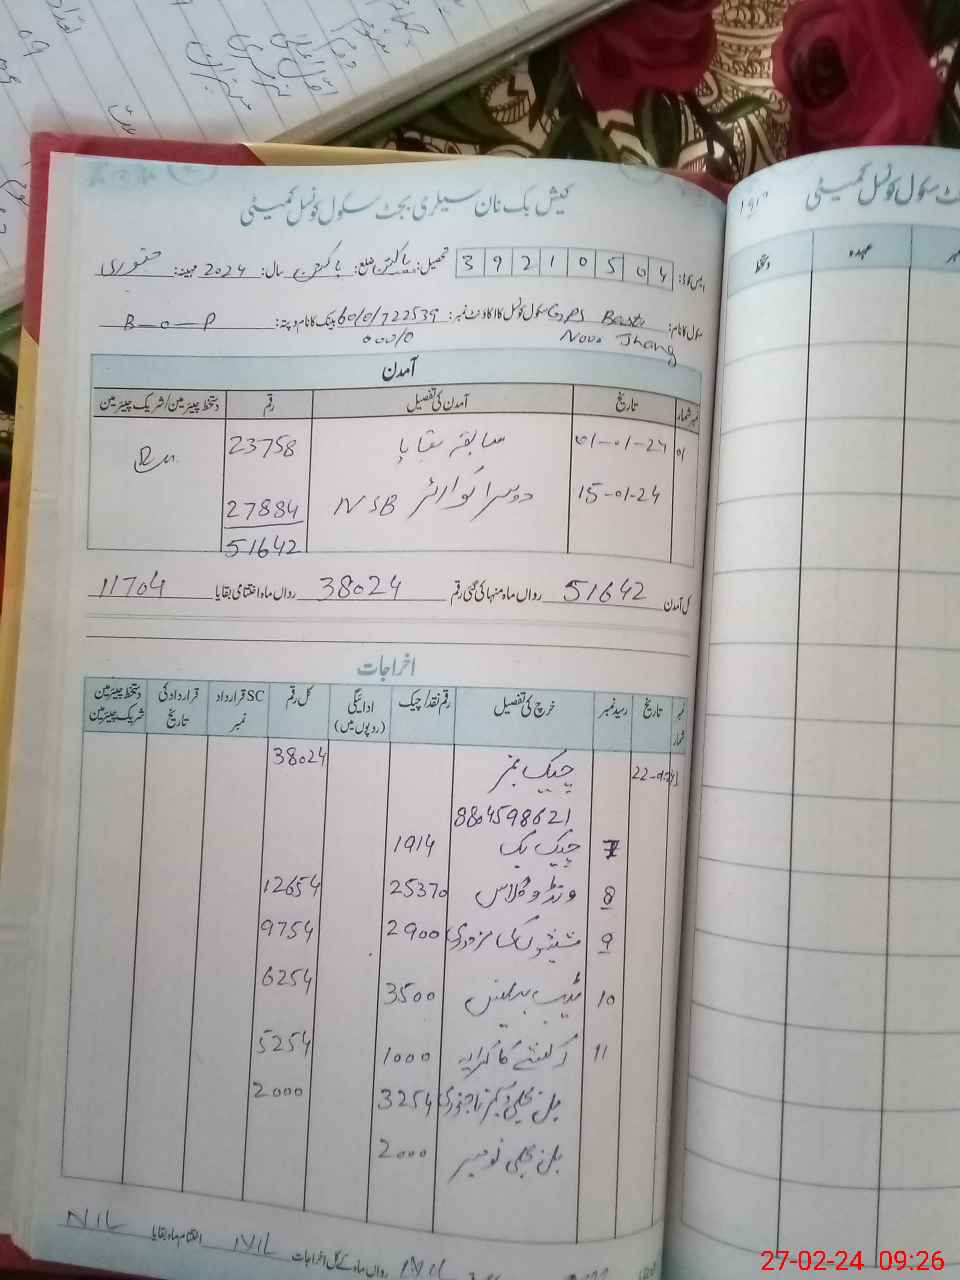 کیش بک نان سیلری بجٹ سکول کونسل کمیٹی
ایس کوڈ: 3 9 2 1 0 5 0 4 تحصیل: پاکپتن ضلع: پاکپتن سال: 2024 مہینہ: جنوری
سکول کا نام: GPS Basti Nove Jhang سکول کونسل کا اکاؤنٹ نمبر: 6010172253900010 بینک کا نام و پتہ: B-O-P
آمدن
نمبر شمار تاریخ آمدن کی تفصیل رقم دستخط چیئرمین/شریک چیئرمین
01 01-01-24 سابقہ بقایا 23758
15-01-24 دوسرا کوارٹر NSB 27884
51642
کل آمدن 51642 رواں ماہ منہا کی گئی رقم 38024 رواں ماہ اختتامی بقایا 11704
اخراجات
نمبر شمار تاریخ رسید نمبر خرچ کی تفصیل رقم نقد/چیک ادائیگی (روپوں میں) کل رقم SC قرارداد نمبر قرارداد کی تاریخ دستخط چیئرمین شریک چیئرمین
22-01-24 چیک نمبر 38024
8804598621
7 چیک بک 1914
8 ونڈو گلاس 25370 12654
9 شیشوں کی مزدوری 2900 9754
10 3500 6254
11 رکشے کا کرایہ 1000 5254
بل بجلی دسمبر تا جنوری 3254 2000
بل بجلی نومبر 2000
رواں ماہ کے کل اخراجات NIL اختتام ماہ بقایا NIL
سکول کونسل کمیٹی
عہدہ دستخط
27-02-24 09:26